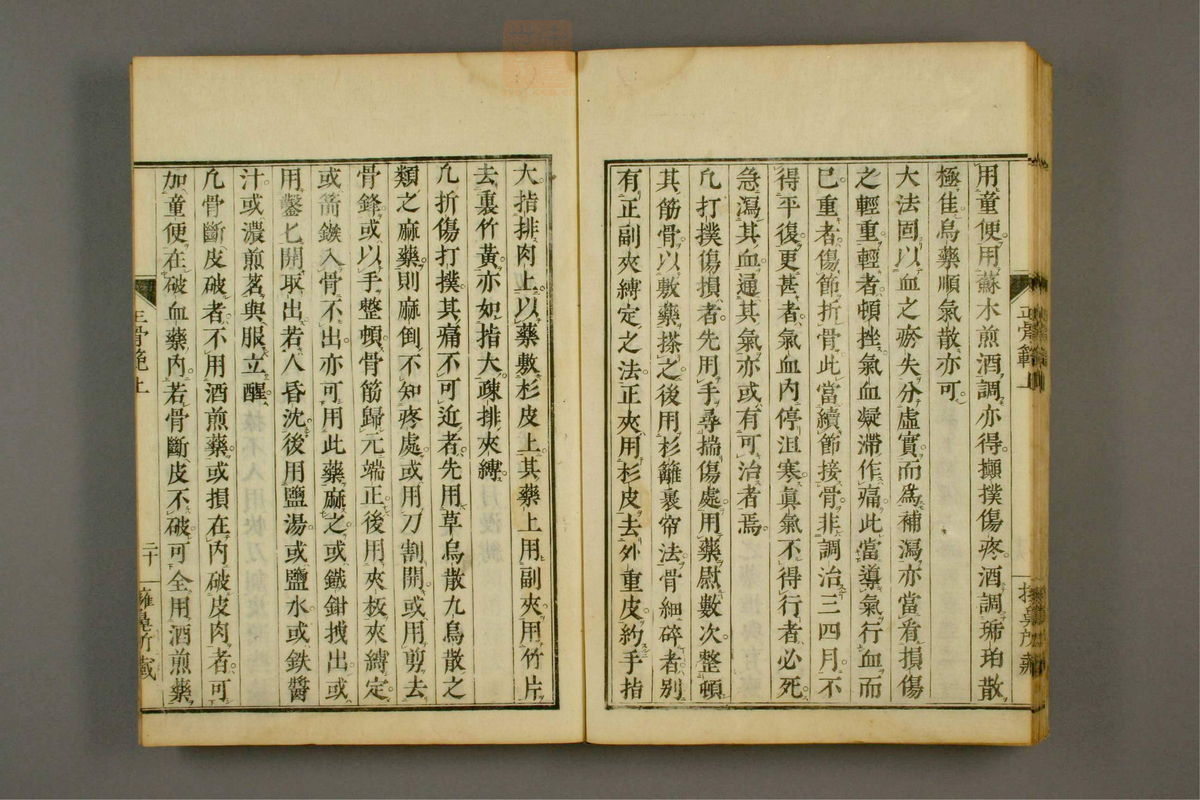 用童便用蘇木煎酒調亦得攧撲傷疼酒調琥珀散
極佳烏藥順氣散亦可
大法固以血之瘀失分虛實而爲補瀉亦當看損傷
之輕重輕者頓挫氣血凝滯作痛此當導氣行血而
已重者傷節折骨此當續節接骨非調治三四月不
得平復更甚者氣血內停沮寒眞氣不得行者必死
急瀉其血通其氣亦或有可治者焉
凢打撲傷損者先用手尋揣傷處用藥熨數次整頓
其筋骨以敷藥搽之後用杉籬裹帘法骨細碎者別
有正副夾縛定之法正夾用杉皮去外重皮約手指
正骨範上
大指排肉上以藥敷杉皮上其藥上用副夾用竹片
去裏竹黃亦如指大疎排夾縛
凢折傷打撲其痛不可近者先用草烏散九烏散之
類之麻藥則麻倒不知疼處或用刀割開或用剪去
骨鋒或以手整頓骨筋歸元端正後用夾板夾縛定
或箭鏃入骨不出亦可用此藥麻之或鐵鉗拽出或
用鑿匕開取出若人昏沈後用鹽湯或鹽水或鉄醬
汁或濃煎茗與服立醒
凢骨斷皮破者不用酒煎藥或損在內破皮肉者可
加童便在破血藥內若骨斷皮不破可全用酒煎藥
正骨範上
二十